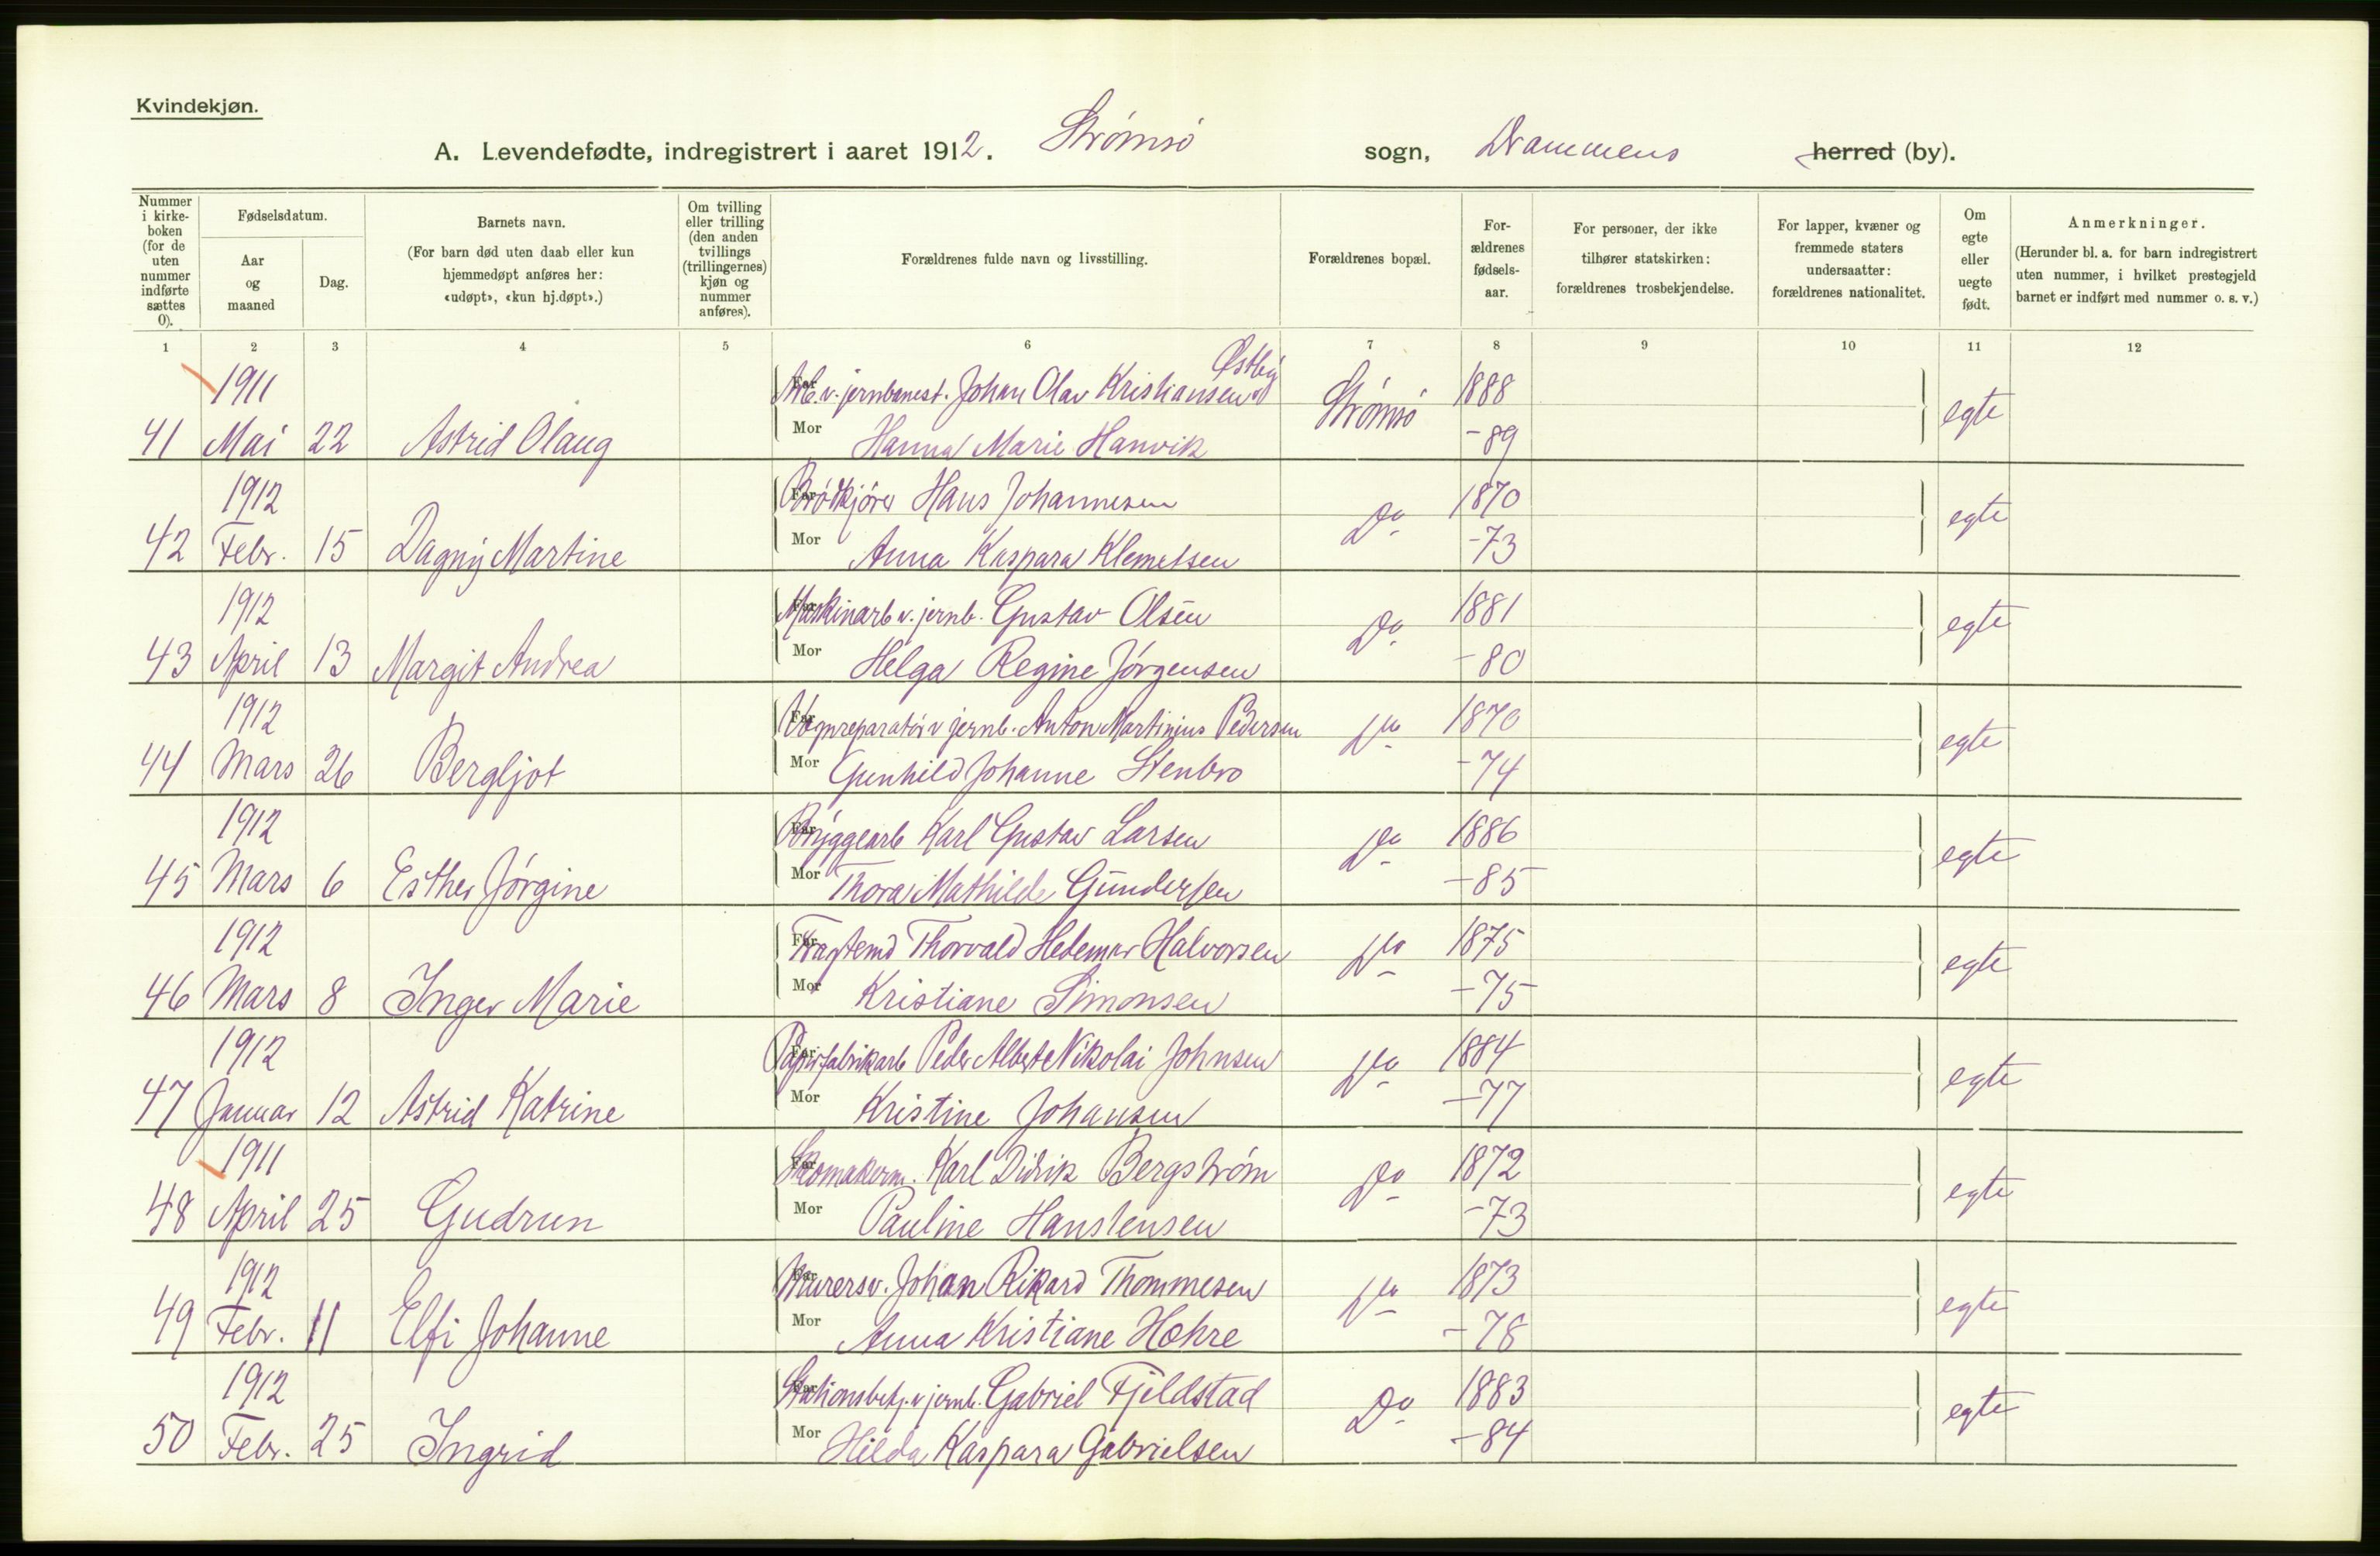 Kvindekjøn.
A. Levendefødte, indregistrert i aaret 1912. Strømsø sogn, Drammens herred (by).
Nummer i kirke-boken (for de uten nummer indførte sættes 0).
Fødselsdatum.
Aar og maaned
Dag.
Barnets navn.
(For barn død uten daab eller kun hjemmedøpt anføres her: «udøpt», «kun hj.døpt».)
Om tvilling eller trilling (den anden tvillings (trillingernes) kjøn og nummer anføres).
Forældrenes fulde navn og livsstilling.
Forældrenes bopæl.
For-ældrenes fødsels-aar.
For personer, der ikke tilhører statskirken: forældrenes trosbekjendelse.
For lapper, kvæner og fremmede staters undersaatter: forældrenes nationalitet.
Om egte eller uegte født.
Anmerkninger.
(Herunder bl. a. for barn indregistrert uten nummer, i hvilket prestegjeld barnet er indført med nummer o. s. v.)
1 2 3 4 5 6 7 8 9 10 11 12
1911 Far Arb. v. jernbanest. Johan Olav Kristiansen Østby Strømsø 1888 egte
41 Mai 22 Astrid Olaug Mor Hanna Marie Hanvik -89
1912 Far Brødkjører Hans Johannesen Do 1870 egte
42 Febr. 15 Dagny Martine Mor Anna Kaspara Klemetsen -73
1912 Far Maskinarb v. jernb. Gustav Olsen Do 1881 egte
43 April 13 Margit Andrea Mor Helga Regine Jørgensen -80
1912 Far Vognreparatør v jernb. Anton Martinius Pedersen Do 1870 egte
44 Mars 26 Bergljot Mor Gunhild Johanne Stenbro -74
1912 Far Bryggearb Karl Gustav Larsen Do 1886 egte
45 Mars 6 Esther Jørgine Mor Thora Mathilde Gundersen -85
1912 Far Thorvald Hedemar Halvorsen Do 1875 egte
46 Mars 8 Inger Marie Mor Kristiane Simonsen -75
1912 Far Papirfabrikarb Peder Albert Nikolai Johnsen Do 1884 egte
47 Januar 12 Astrid Katrine Mor Kristine Johansen -77
1911 Far Skomakerm. Karl Didrik Bergstrøm Do 1872 egte
48 April 25 Gudrun Mor Pauline Hanstensen -73
1912 Far Murersv. Johan Rikard Thommesen Do 1873 egte
49 Febr. 11 Elfi Johanne Mor Anna Kristiane Høhre -78
1912 Far Stationsbetj. v jernb. Gabriel Fjeldstad Do 1883 egte
50 Febr. 25 Ingrid Mor Hilda Kaspara Gabrielsen -84